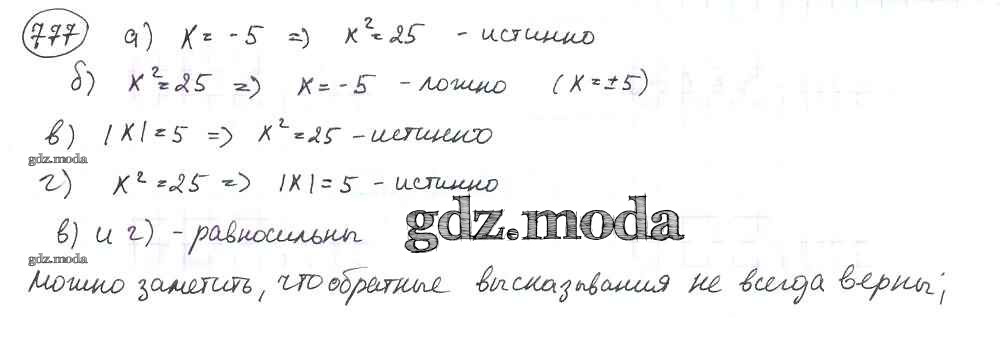 777 а) x = -5 => x² = 25 - истинно
б) x² = 25 => x = -5 - ложно (x = ±5)
в) |x| = 5 => x² = 25 - истинно
gdz.moda
г) x² = 25 => |x| = 5 - истинно
gdz.moda
в) и г) - равносильны
gdz.moda
Можно заметить, что обратные высказывания не всегда верны;